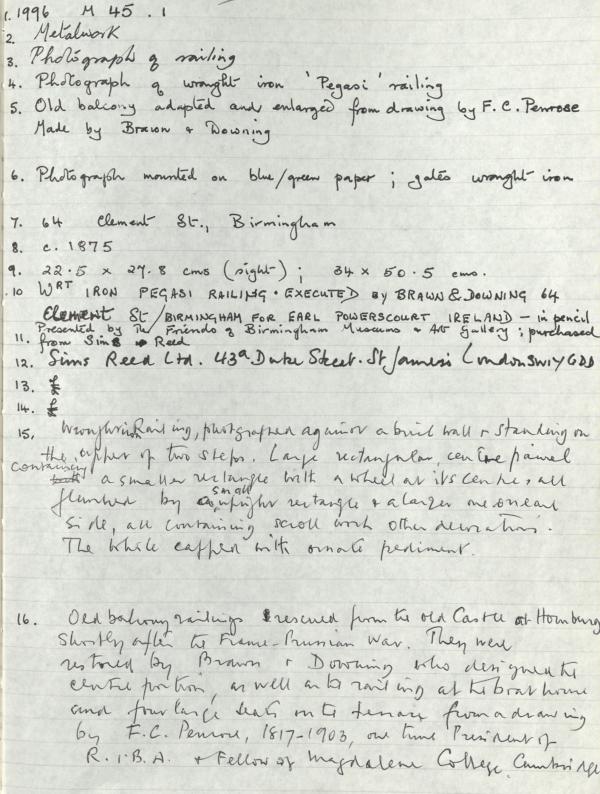 1. 1996 M 45 . 1
2. Metalwork
3. Photograph of railing
4. Photograph of wrought iron 'Pegasi' railing
5. Old balcony adapted and enlarged from drawing by F.C. Penrose
Made by Brawn & Downing
6. Photograph mounted on blue/green paper ; gates wrought iron
7. 64 Clement St., Birmingham
8. c. 1875
9. 22.5 x 27.8 cms (sight) ; 34 x 50.5 cms.
10 WRT IRON PEGASI RAILING . EXECUTED by BRAWN & DOWNING 64
Clement St / BIRMINGHAM FOR EARL POWERSCOURT IRELAND - in pencil
Presented by The Friends of Birmingham Museums & Art Gallery ; purchased
11. from Sims Reed
12. Sims Reed Ltd. 43a Duke Street. St James's London SW1Y 6DD
13. £
14. £
15. Wrought iron Railing, photographed against a brick wall & standing on
the upper of two steps. Large rectangular, centre panel
containing a smaller rectangle with a wheel at its centre, all
flanked by small upright rectangle & a larger one on each
side, all containing scroll work other decoration.
The whole capped with ornate pediment.
16. Old balcony railings rescued from the old Castle at Homburg
shortly after the Franco-Prussian War. They were
restored by Brawn & Downing who designed the
centre portion, as well as the railing at the boat house
and four large seats on the terrace from a drawing
by F.C. Penrose, 1817-1903, one time President of
R.I.B.A. & Fellow of Magdalene College, Cambridge